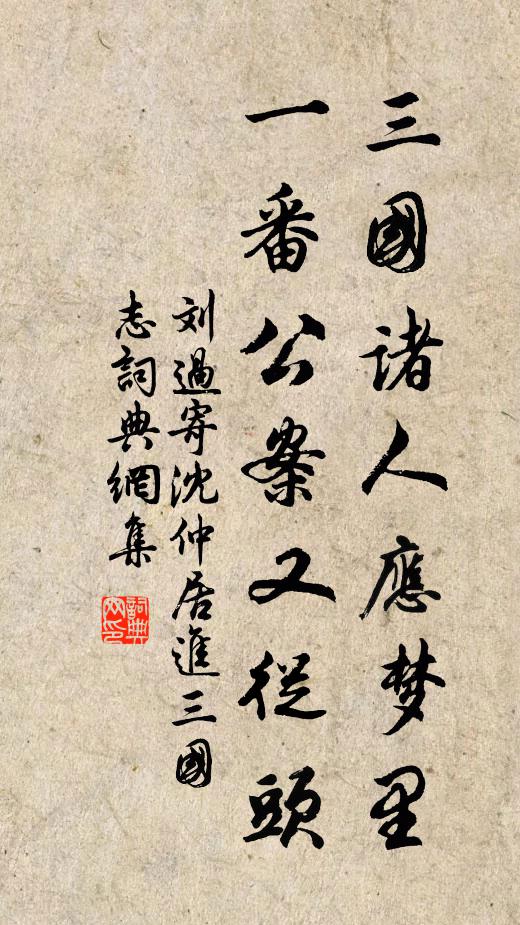 三國诸人應梦里
一番公案又從頭
刘過寄沈仲居進三國
志詞典網集
詞典
网印